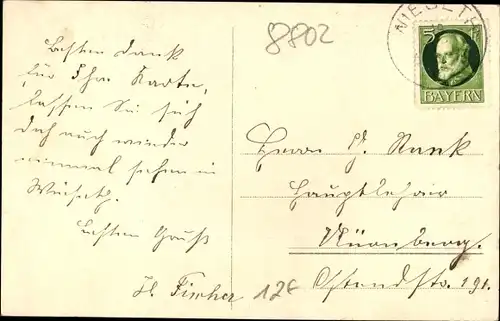 8802
Besten Dank
für Ihre Karte,
lassen Sie sich
doch auch wieder
einmal sehen in
Besten Gruß
Fischer
12€
5
BAYERN
Herrn
Hauptlehrer
Nürnberg.
Ostendstr. 191.